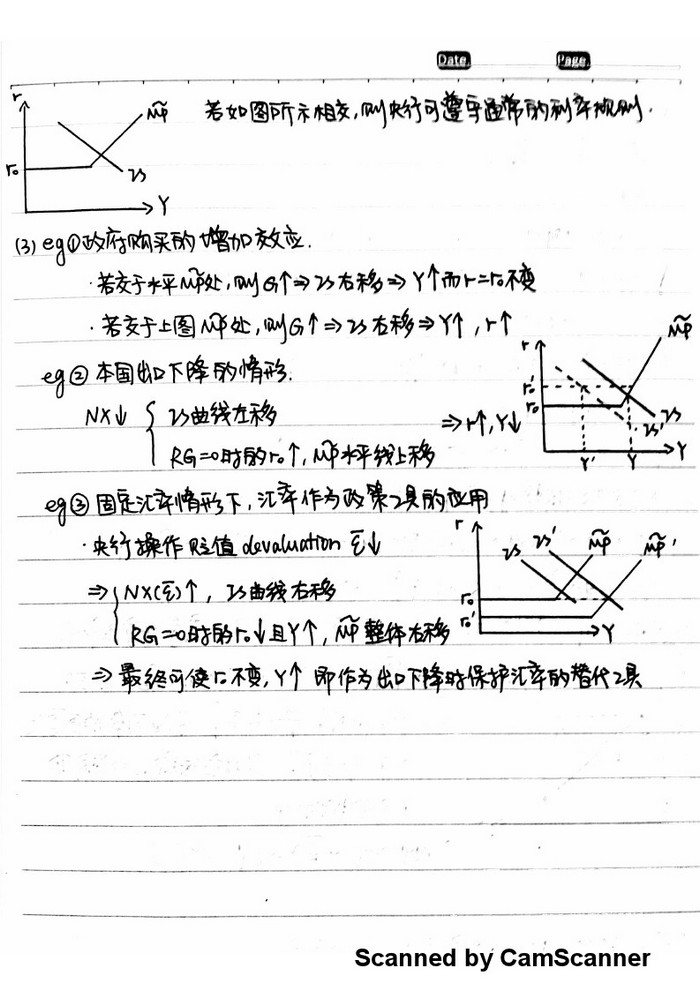 Date. Page.
r
M̃P 若如图所示相交,则央行可遵守通常的利率规则.
r₀
IS
Y
(3) eg①政府购买的增加效应.
·若交于水平M̃P处,则G↑⇒IS右移⇒Y↑而r=r₀不变
·若交于上图M̃P处,则G↑⇒IS右移⇒Y↑,r↑
r M̃P
eg②本国出口下降的情形.
r₀'
r₀
NX↓ { IS曲线左移
⇒r↑,Y↓
IS' IS
RG=0时的r₀↑,M̃P水平线上移
Y' Y Y
eg③固定汇率情形下,汇率作为政策工具的应用
·央行操作贬值 devaluation ε̅↓
r IS IS' M̃P M̃P'
⇒ { NX(ε̅)↑, IS曲线右移
r₀
RG=0时的r₀↓且Y↑, M̃P整体右移
r₀' Y
⇒最终可使r₀不变,Y↑ 即作为出口下降时保护汇率的替代工具
Scanned by CamScanner